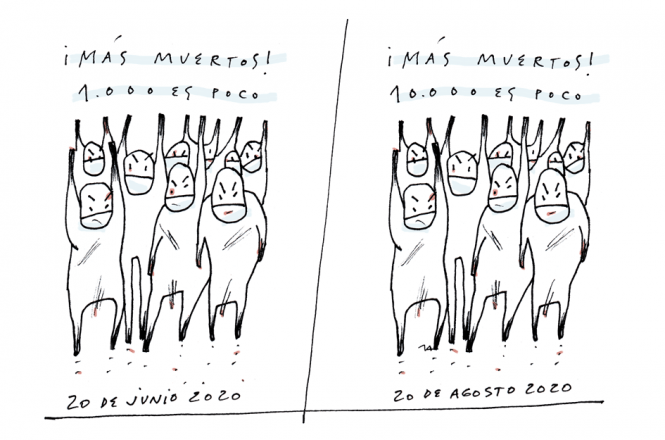 ¡MÁS MUERTOS!
1.000 ES POCO
20 DE JUNIO 2020
¡MÁS MUERTOS!
10.000 ES POCO
20 DE AGOSTO 2020